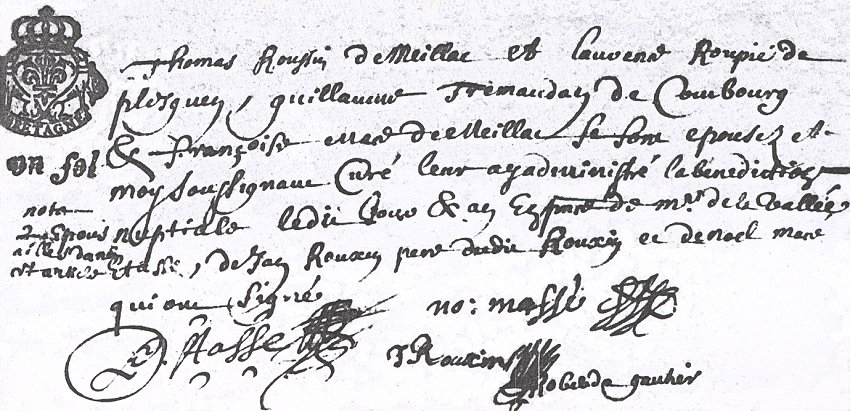 BRETAGNE
un sol
Thomas Roussin de Meillac et laurence Roupié de
plesguen, guillaume Tremaudan de Combourg
& françoise Macé de Meillac se sont epousez et
moy soussignant Curé leur ay administré la bénediction
nuptiale ledit jour & an En de mr de la Vallée
, de Jan Rouxin pere dudit Rouxin et de noel Mace
qui ont signé
nota
no: massé
T Rouxin
gautier